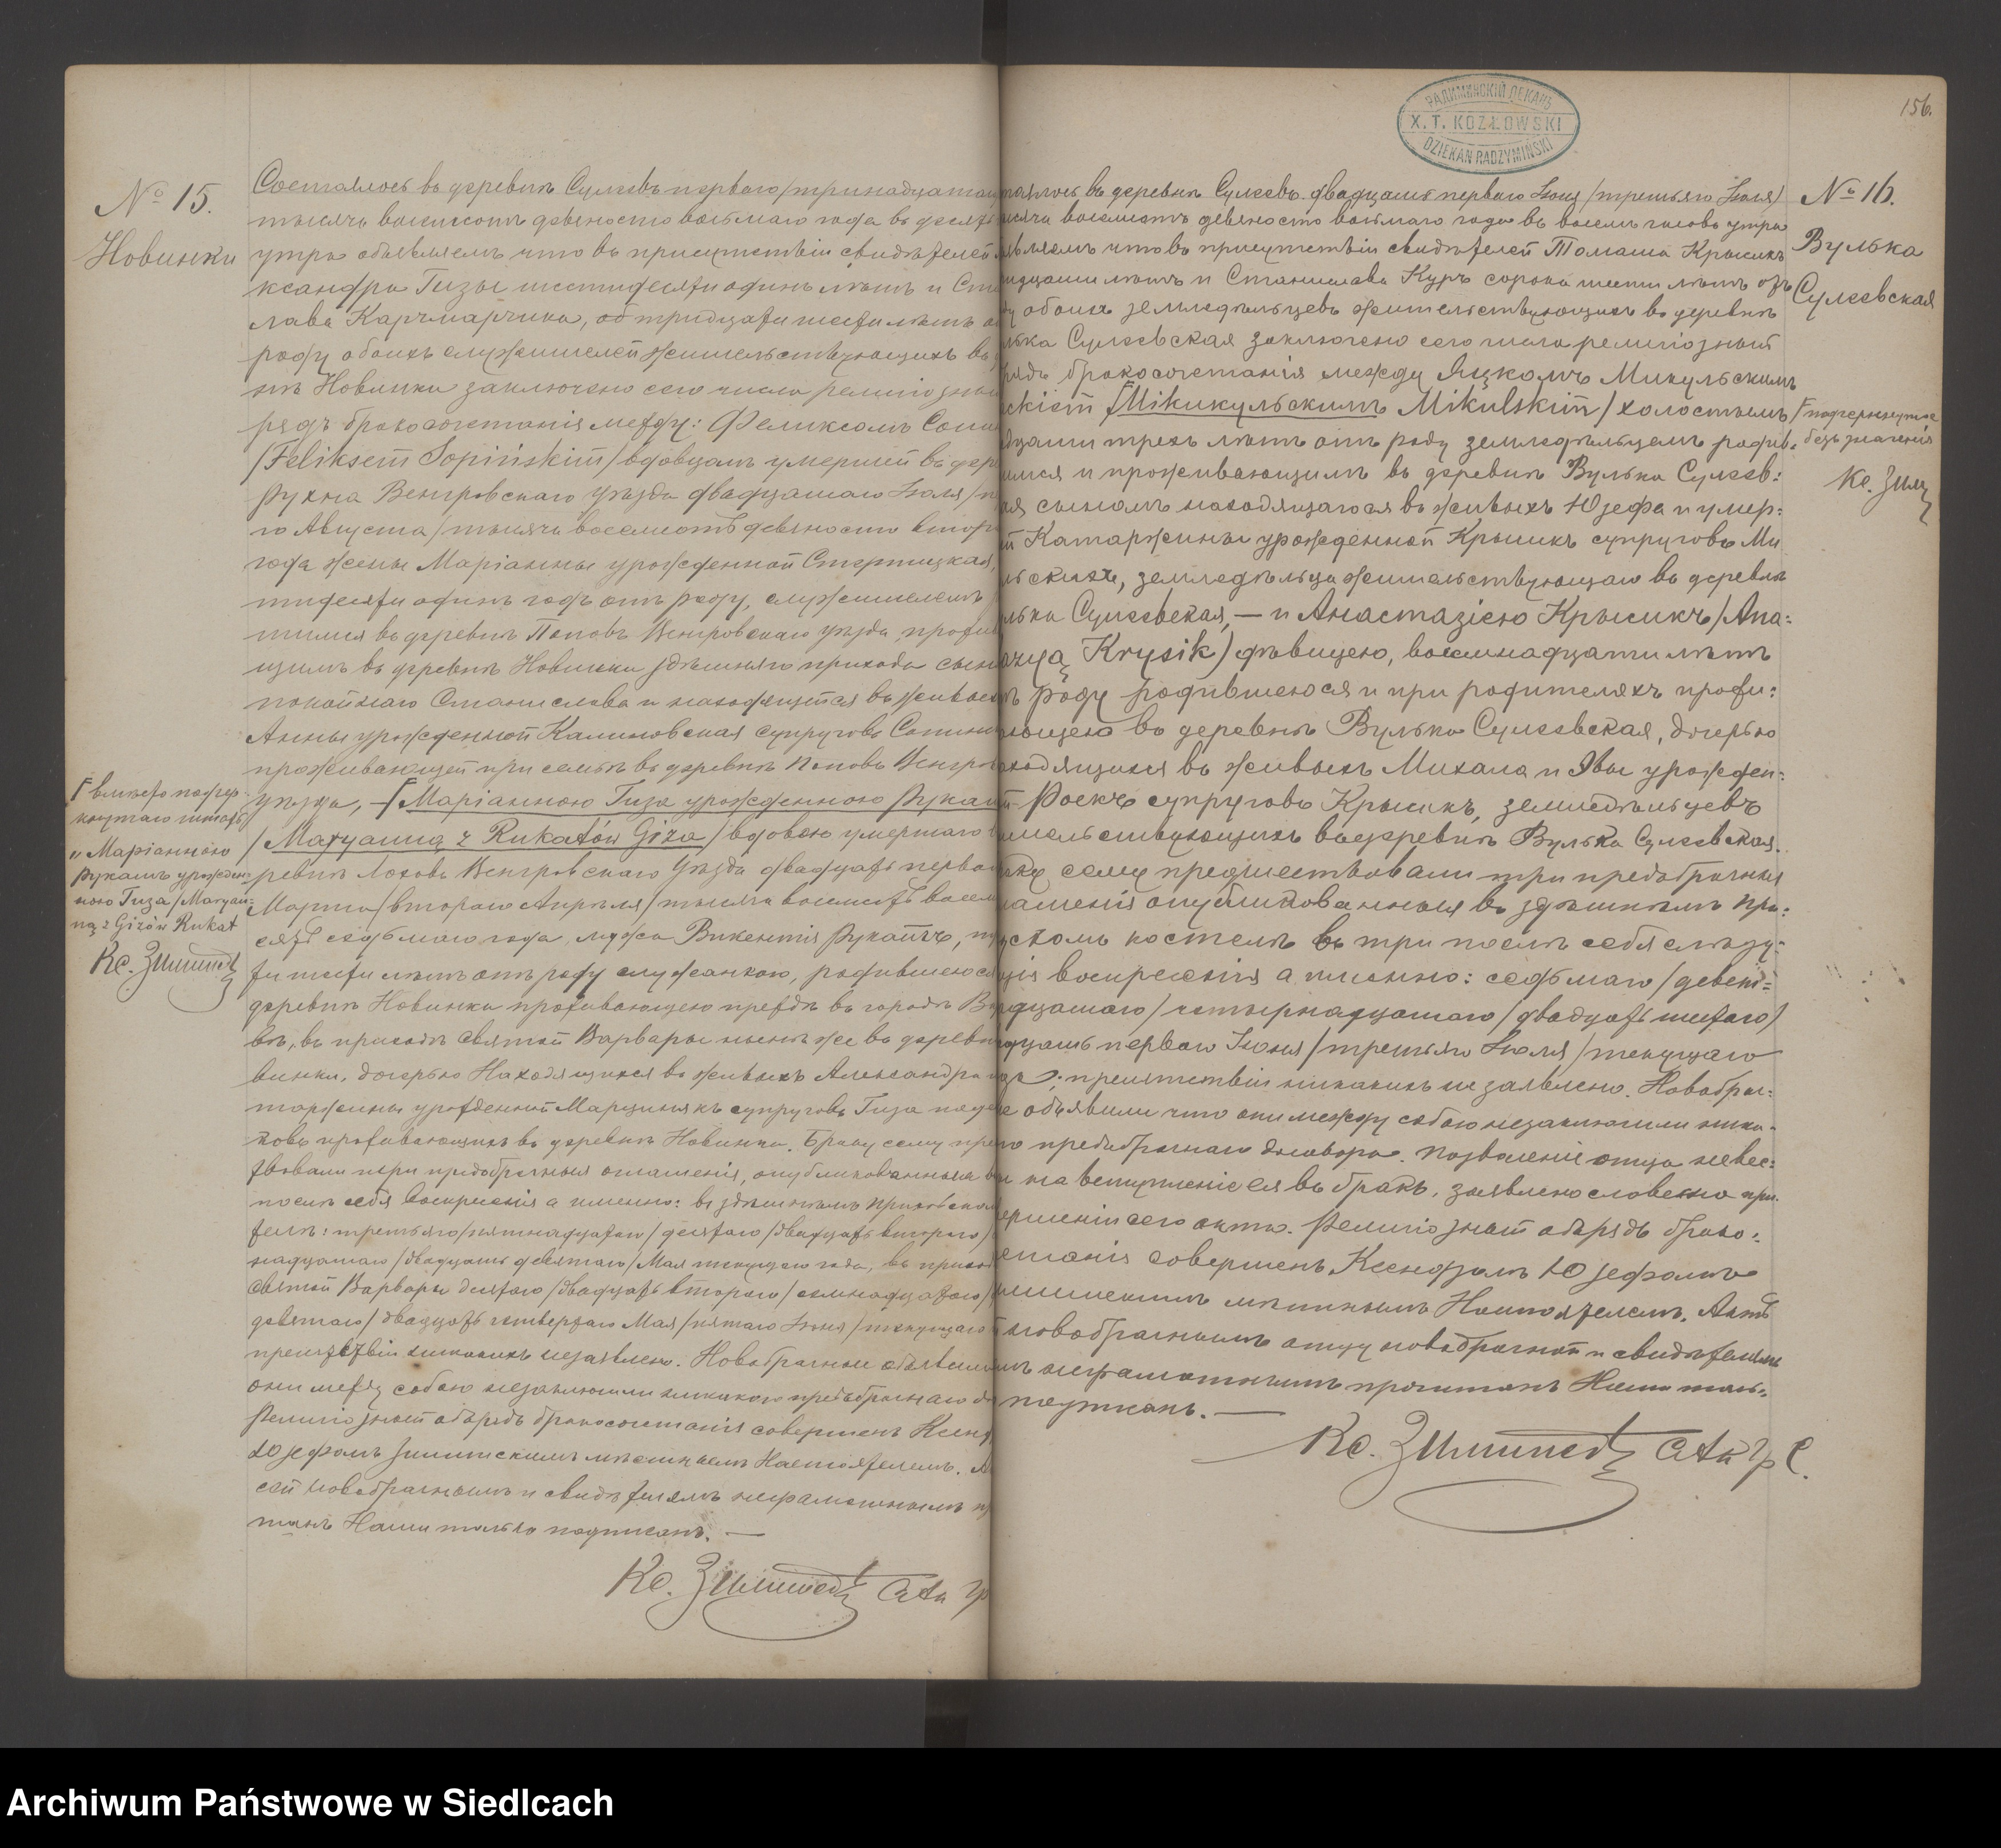 № 15.
Новинки
Состоялось въ деревнѣ Сулеевъ перваго/тринадцатаго
тысяча восемьсотъ девяносто восьмаго года въ десять
утра объявляемъ что въ присутствіи свидѣтелей
ксандра Гизы шестидесяти одинъ лѣтъ и Ста
слава Карчмарчика, об тридцати шести лѣтъ о
роду обоихъ служителей жительствующихъ въ
нѣ Новинки заключено сего числа религіозный
рядъ бракосочетанія между: Феликсомъ Сопи
/Feliksem Sopińskim/ вдовцамъ умершей въ дер
Рухна Венгровскаго уѣзда двадцатаго Іюля/
го Августа/тысяча восемьсотъ девяносто втор
года жены Маріанны урожденной Стертицкая,
тидесяти одинъ годъ отъ роду, служителемъ
шимся въ деревнѣ Поповъ Венгровскаго уѣзда прожи
щимъ въ деревнѣ Новинки здѣшняго прихода сын
покойнаго Станислава и находящейся въ живых
Анны урожденной Калиновская супруговъ Сопин
проживающей при семьѣ въ деревнѣ Поповъ Венгр
уѣзда, – Маріанною Гиза урожденною Рукат
/Maryanną z Rukatów Giza/ вдовою умершаго в
ревнѣ Лоховъ Венгровскаго Уѣзда двадцать перваго
Марта/втораго Апрѣля/тысяча восемьсотъ восем
сятъ седьмаго года, мужа Викентія Рукатъ,
ти шести лѣтъ отъ роду служанкою, родившеюся
деревнѣ Новинки проживающею прежде въ городѣ Ва
вѣ, въ приходѣ Святой Варвары нынѣ же въ деревн
винки, дочерью Находящихся въ живыхъ Александра
таржины урожденной Марциникъ супруговъ Гиза поде
ковъ проживающихъ въ деревнѣ Новинки. Браку сему пре
твовали три предбрачныя оглашенія, опубликованныя в
послѣ себя воскресенія а именно: въ здѣшнемъ приходском
телѣ: третьяго/пятнадцатаго/десятаго/двадцать втораго/
надцатаго/двадцать девятаго/Мая текущаго года, въ приход
Святой Варвары десятаго/двадцать втораго/семнадцатаго/
девятаго/двадцать четвертаго Мая/пятаго Іюня/текущаго
препятствій никакихъ незаявлено. Новобрачные объявили
они между собою незаключили никакого предбрачнаго до
Религіозный обрядъ бракосочетанія совершенъ Ксенд
Юзефомъ Зминскимъ мѣстнымъ Настоятелемъ. А
сей новобрачнымъ и свидѣтелямъ неграмотнымъ п
танъ Нами только подписанъ. —
Кс.
вмѣсто подчер
кнутаго читать
„Маріанною
Рукатъ урожден:
ною Гиза/Maryan:
ną z Gizów Rukat
Кс.
РАДИМИНСКІЙ ДЕКАНЪ
X. T. KOZŁOWSKI
DZIEKAN RADZYMIŃSKI
156.
№ 16.
Вулька
Сулеевская
тоялось въ деревнѣ Сулеевъ двадцать перваго Іюня/третьяго Іюля/
ысяча восемьсотъ девяносто восьмаго года въ восемь часовъ утра
являемъ что въ присутствіи свидѣтелей Томаша Крысикъ
идцати лѣтъ и Станислава Куръ сорока шести лѣтъ отъ
у обоихъ земледѣльцевъ жительствующихъ въ деревнѣ
лька Сулеевская заключено сего числа религіозный
рядъ бракосочетанія между Яцкомъ Микульскимъ
ckiem Микикульскимъ Mikulskim/холостымъ,
дцати трехъ лѣтъ отъ роду земледѣльцемъ родив:
шимся и проживающимъ въ деревнѣ Вулька Сулеев:
ая сыномъ находящагося въ живыхъ Юзефа и умер:
й Катаржины урожденной Крысикъ супруговъ Ми
льскихъ, земледѣльца жительствующаго въ деревнѣ
лька Сулеевская, — и Анастазіею Крысикъ/Ana:
azyą Krysik) дѣвицею, восемнадцати лѣтъ
ъ роду родившеюся и при родителяхъ прожи:
ающею въ деревнѣ Вулька Сулеевская, дочерью
аходящихся въ живыхъ Михала и Эвы урожден:
й Роекъ супруговъ Крысикъ, земледѣльцевъ
ительствующихъ въ деревнѣ Вулька Сулеевская.
раку сему предшествовали три предбрачныя
лашенія опубликованныя въ здѣшнемъ при:
дскомъ костелѣ въ три послѣ себя слѣду:
щія воскресенія а именно: седьмаго/девят:
адцатаго/четырнадцатаго/двадцать шестаго/
адцать перваго Іюня/третьяго Іюля/текущаго
да; препятствій никакихъ не заявлено. Новобрач:
е объявили что они между собою незаключили ника:
го предбрачнаго договора. Позволеніе отца невѣс:
ы на вступленіе ея въ бракъ, заявлено словесно при
ершеніи сего акта. Религіозный обрядъ брако:
етанія совершенъ Ксендзомъ Юзефомъ
мѣстнымъ Настоятелемъ. Актъ
й новобрачнымъ отцу новобрачной и свидѣтелямъ
ъ неграмотнымъ прочитанъ Нами толь:
подписанъ. —
Кс.
подчеркнутое
безъ значенія
Кс.
Archiwum Państwowe w Siedlcach